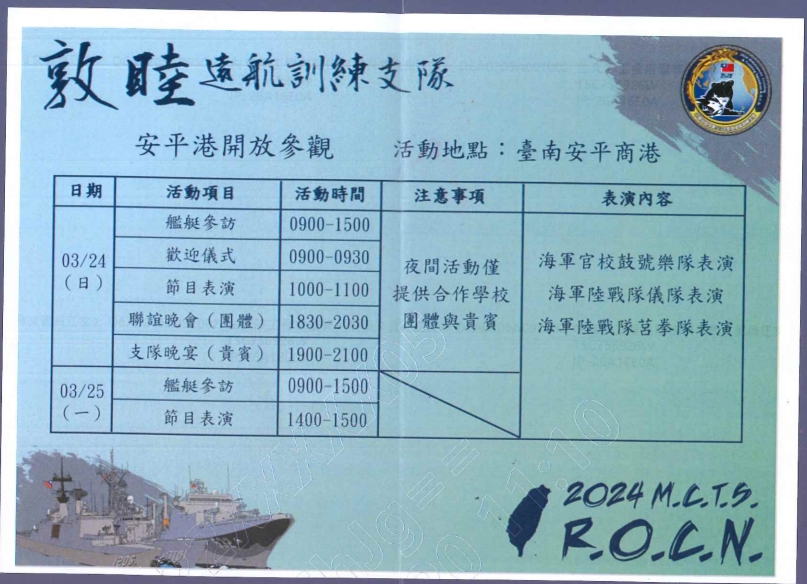 敦睦遠航訓練支隊
安平港開放參觀 活動地點：臺南安平商港
日期 活動項目 活動時間 注意事項 表演內容
03/24（日） 艦艇參訪 0900-1500
歡迎儀式 0900-0930
節目表演 1000-1100
聯誼晚會（團體） 1830-2030
支隊晚宴（貴賓） 1900-2100
夜間活動僅
提供合作學校
團體與貴賓
海軍官校鼓號樂隊表演
海軍陸戰隊儀隊表演
海軍陸戰隊莒拳隊表演
03/25（一） 艦艇參訪 0900-1500
節目表演 1400-1500
2024 M.C.T.S.
R.O.C.N.